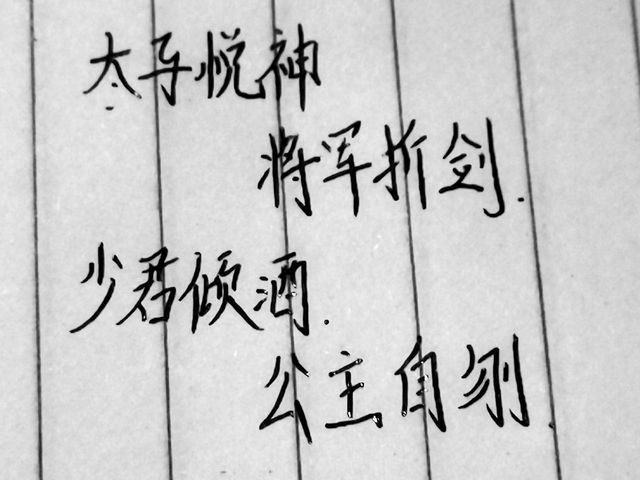 太子悦神
将军折剑.
少君倾酒.
公主自刎.